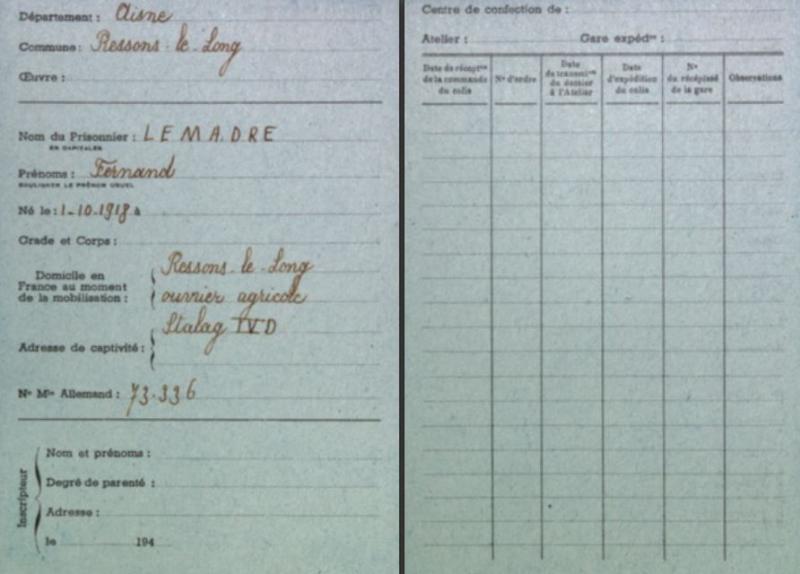 Département : Aisne
Commune : Ressons-le-Long
Œuvre :
Nom du Prisonnier : LEMADRE
EN CAPITALES
Prénoms : Fernand
SOULIGNER LE PRÉNOM USUEL
Né le : 1-10-1918 à
Grade et Corps :
Domicile en
France au moment
de la mobilisation :
Ressons-le-Long
ouvrier agricole
Adresse de captivité :
Stalag IV D
Nº Mle Allemand : 73.336
Inscripteur
Nom et prénoms :
Degré de parenté :
Adresse :
le 194
Centre de confection de :
Atelier : Gare expédre :
Date de récepton
de la commande
du colis
Nº d'ordre
Date
de transmion
du dossier
à l'Atelier
Date
d'expédition
du colis
Nº
du récépissé
de la gare
Observations